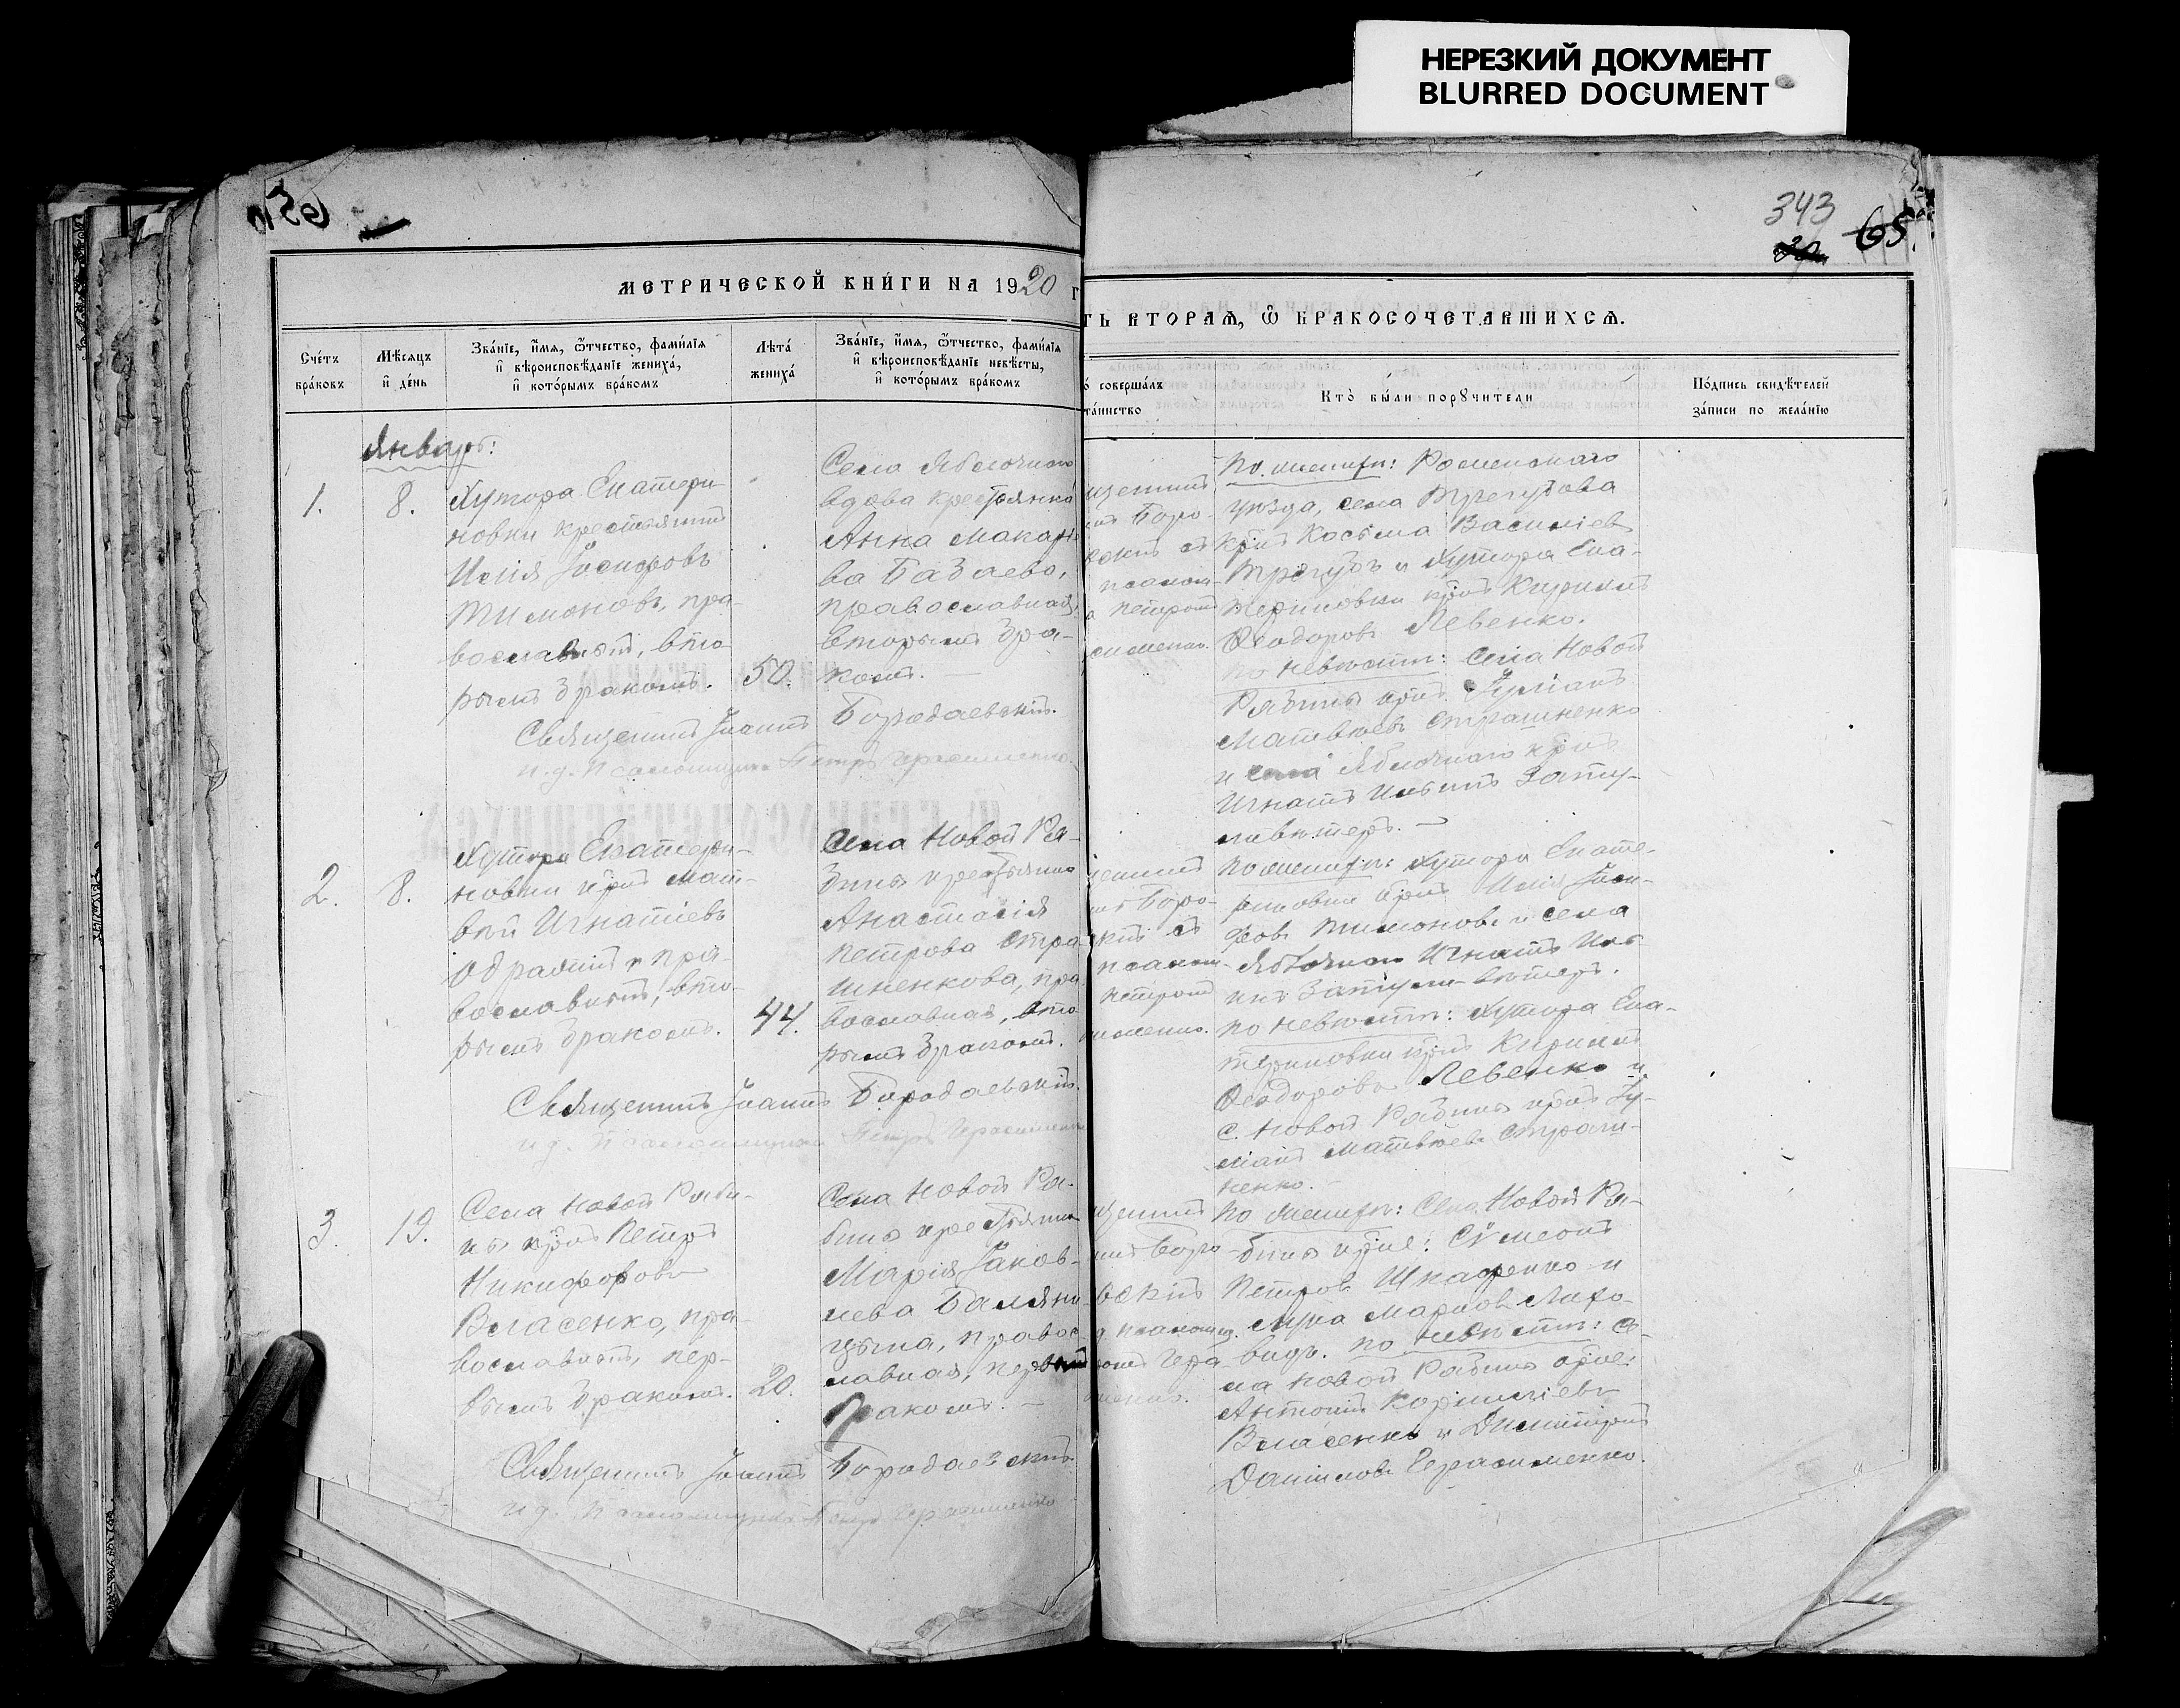 НЕРЕЗКИЙ ДОКУМЕНТ
BLURRED DOCUMENT
343
65
МЕТРИЧЕСКОЙ КНИ́ГИ НА 1920 г
ТЬ ВТОРАѦ, Ѽ БРАКОСОЧЕТАВШИХСѦ.
Сче́тъ бра́ковъ
Мѣ́сѧцъ и҆ де́нь
Зва́нїе, и҆́мѧ, ѻ҆́тчество, фами́лїѧ и҆ вѣроисповѣ́данїе жениха́, и҆ кото́рымъ бра́комъ
Лѣта́ жениха́
Зва́нїе, и҆́мѧ, ѻ҆́тчество, фами́лїѧ и҆ вѣроисповѣ́данїе невѣ́сты, и҆ кото́рымъ бра́комъ
о́ соверша́лъ
та́инство
Кто̀ бы́ли порꙋчители
По́дпись свидѣ́телей за́писи по жела́нїю
Январь:
1.
8.
Хутора Екатери-
новки крестьянинъ
Илія Іосифовъ
Тимоновъ, пра-
вославный, вто-
рымъ бракомъ.
50.
Села Яблочнаго
вдова крестьянка
Анна Макарі
ва Бабаева,
православная,
вторымъ бра-
комъ.
щенникъ
Боро-
псалом-
Петромъ
По женихѣ: Роменскаго
уѣзда, села Трегубова
крнъ Косьма Василіевъ
Трегубъ и хутора Ека-
териновки крнъ Кириллъ
Ѳеодоровъ Левенко.
по невѣстѣ: села Новой
Рябины крнъ Іуліанъ
Матвѣевъ Страшненко
и села Яблочнаго крнъ
Игнатъ Ильинъ Зату-
ливѣтеръ.
Священникъ Іоаннъ Бородаевскій.
и.д. Псаломщика Петръ Герасименко.
2.
8.
Хутора Екатери-
новки крнъ Мат-
вѣй Игнатіевъ
пра-
вославный, вто-
рымъ бракомъ.
44.
Села Новой Ря-
бины крестьянка
Анастасія
Петрова Стра-
шненкова, пра-
вославная, вто-
рымъ бракомъ.
Боро-
псалом-
Петромъ
По женихѣ: хутора Екате-
риновки крнъ Илія Іоси-
фовъ Тимоновъ и села
Яблочнаго Игнатъ Иль-
инъ Затули-вѣтеръ.
по невѣстѣ: хутора Ека-
териновки крнъ Кириллъ
Ѳеодоровъ Левенко и
с. Новой Рябины крнъ Іу-
ліанъ Матвѣевъ Страш-
ненко.
Священникъ Іоаннъ Бородаевскій.
и.д. Псаломщика Петръ Герасименко
3.
19.
Села Новой Ряби-
ны крнъ Петръ
Никифоровъ
Власенко, пра-
вославный, пер-
вымъ бракомъ.
20.
Села Новой Ря-
бины крестьянка
Марія Іаков-
лева Баляни-
цына, правос-
лавная, первымъ
бракомъ.
щенникъ
Боро-
псаломщ.
Гера-
По женихѣ: села Новой Ря-
бины крне: Сѵмеонъ
Петровъ Шкафенко и
Лука Марковъ Лихо-
видъ. по невѣстѣ: се-
ла Новой Рябины крне:
Антоній Корниліевъ
Власенко и Димитрій
Даніиловъ Герасименко.
Священникъ Іоаннъ Бородаевскій
и.д. Псаломщика Петръ Герасименко